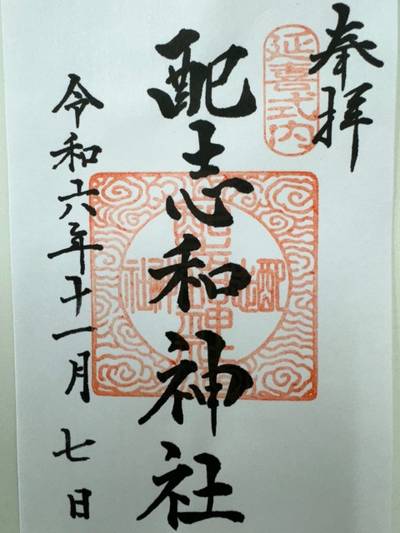 奉拝
延喜式内
配志和神社
令和六年十一月七日